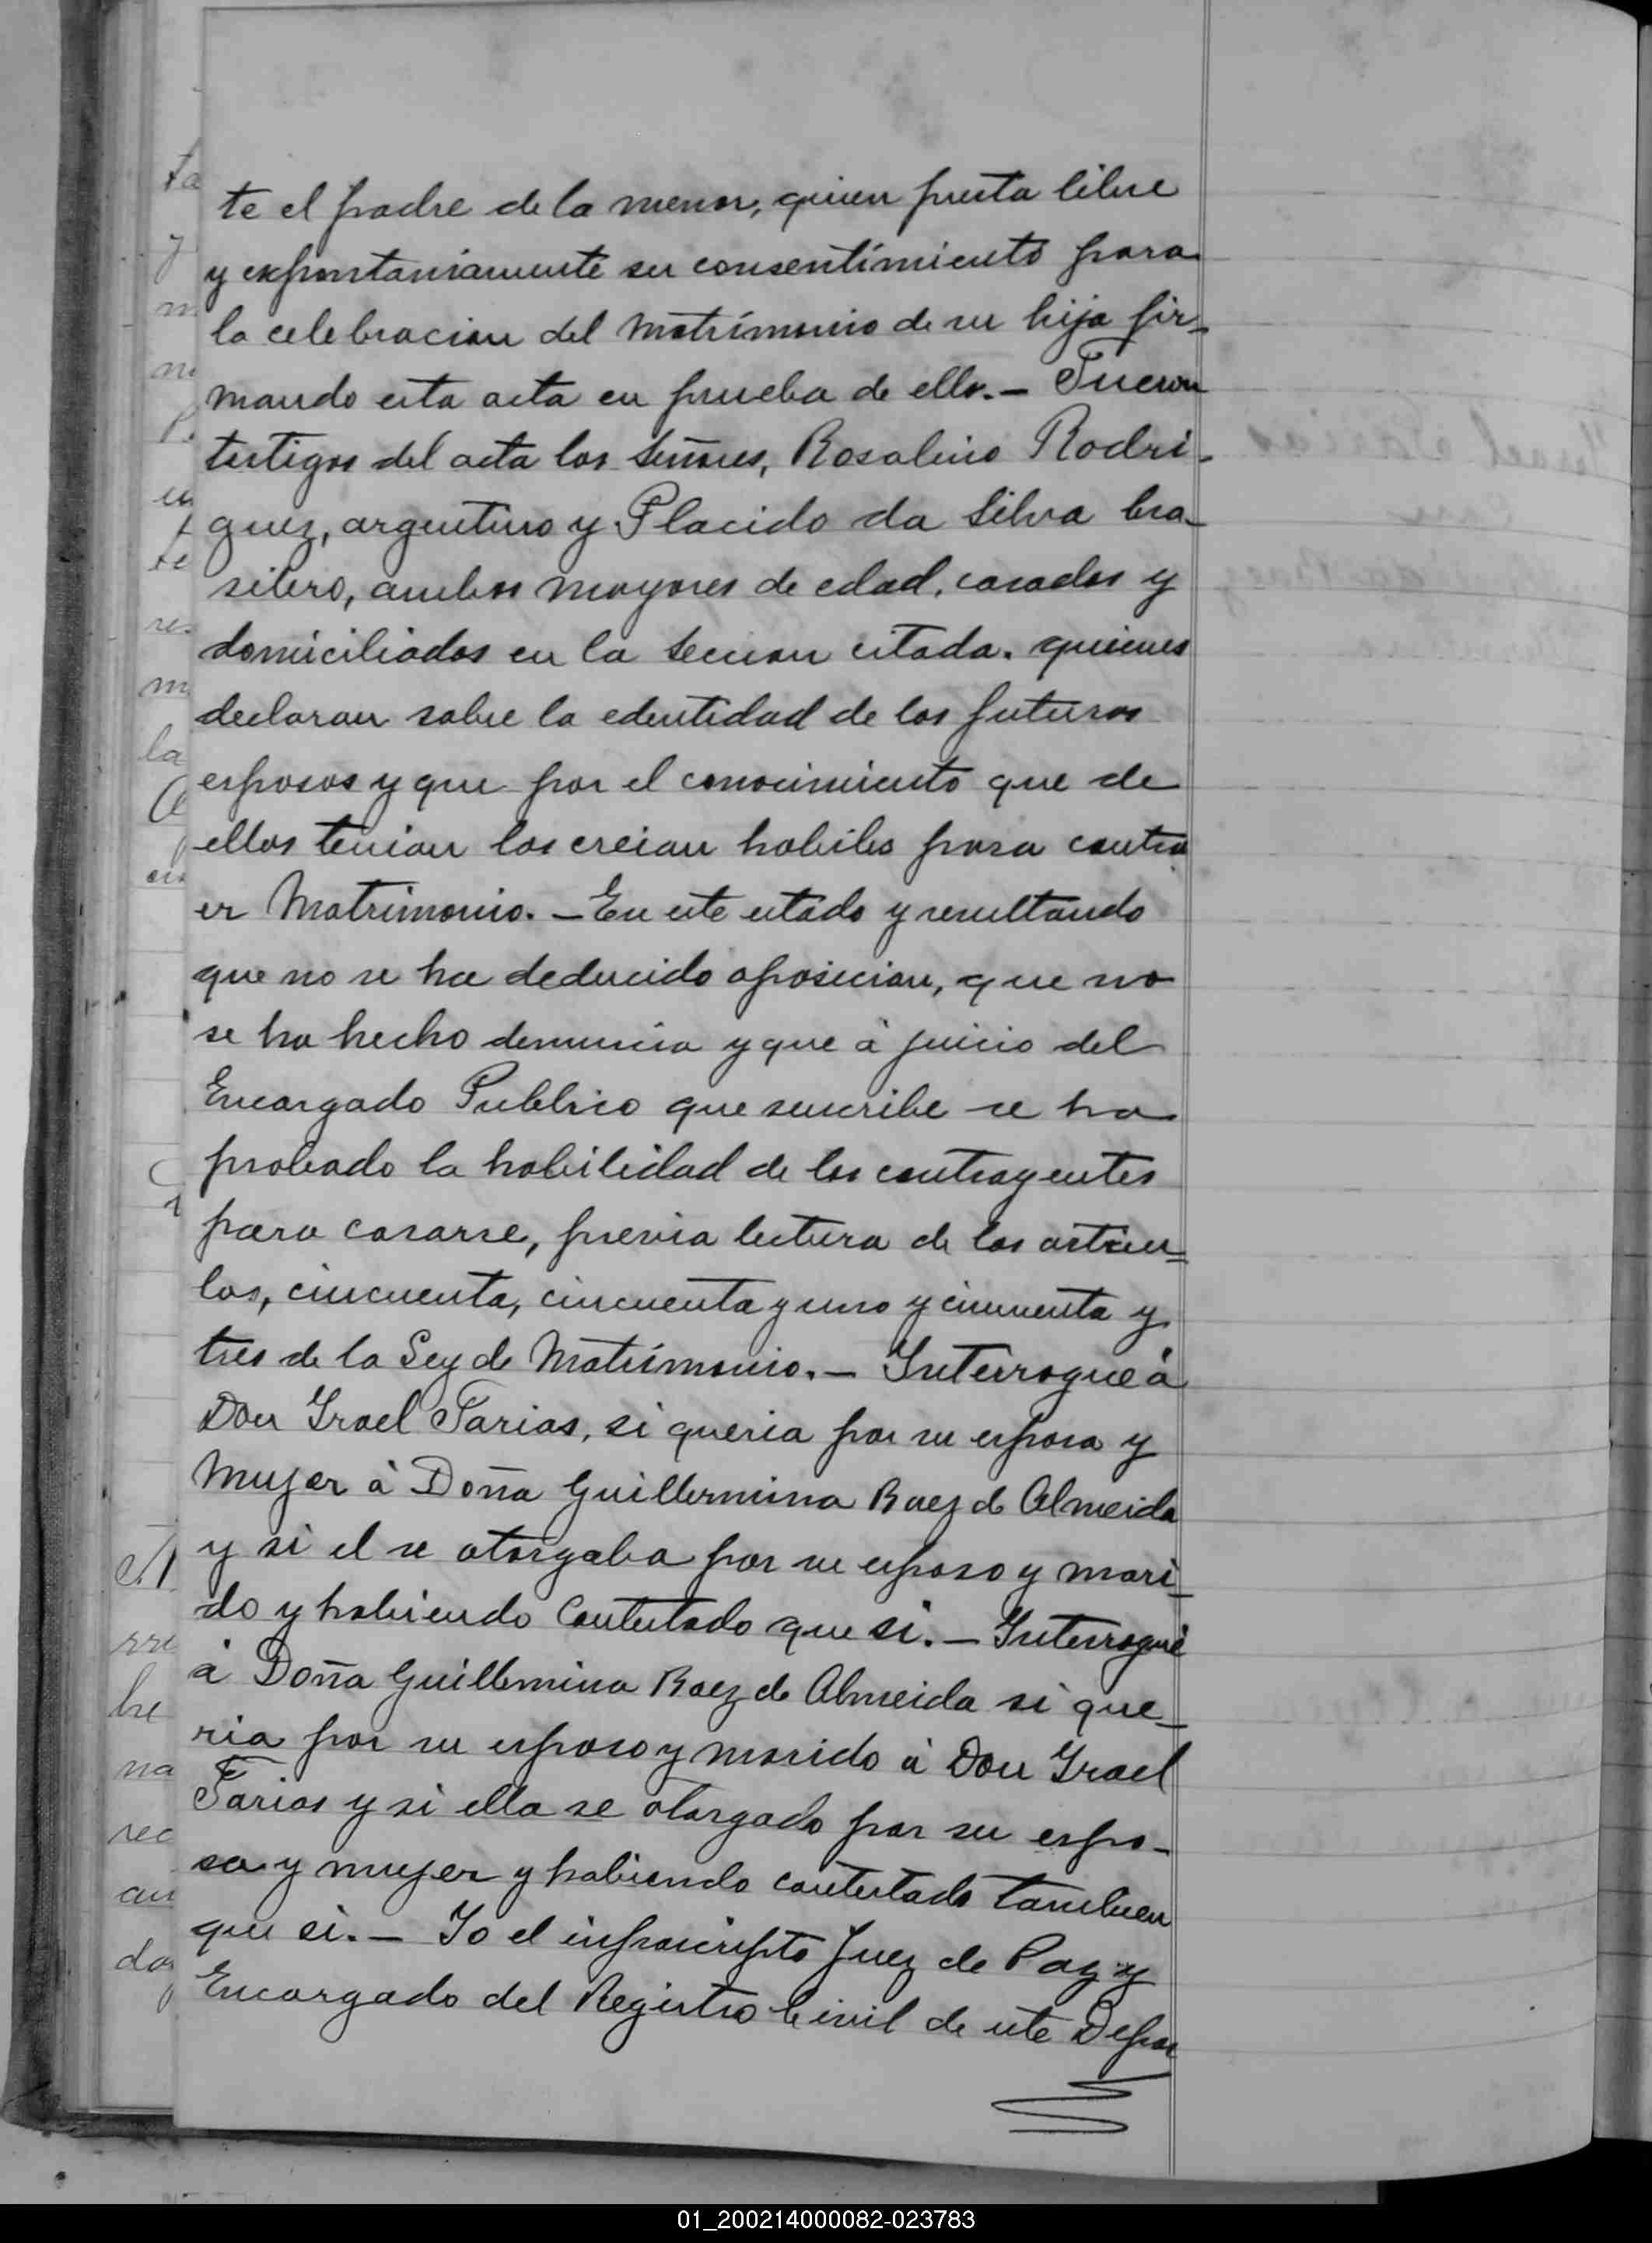 te el padre de la menor, quien presta libre
y expontaniamente su consentimiento para
la celebracion del Matrimonio de su hija fir-
mando esta acta en prueba de ello.- Fueron
testigos del acta los Señores, Rosalino Rodri-
guez, argentino y Placido da Silva bra-
silero, ambos mayores de edad, casados y
domiciliados en la Seccion citada. quienes
declaran sobre la edentidad de los futuros
esposos y que por el conocimiento que de
ellos tenian los creian habiles para contra
er Matrimonio. - En este estado y resultando
que no se ha deducido oposicion, que no
se ha hecho denuncia y que á juicio del
Encargado Publico que suscribe se ha
probado la habilidad de los contrayentes
para casarse, previa lectura de los articu=
los, cincuenta, cincuenta y uno y cincuenta y
tres de la Ley de Matrimonio. - Interrogué á
Don Israel Farias, si queria por su esposa y
Mujer á Doña Guillermina Baez de Almeida
y si el se otorgaba por su esposo y mari-
do y habiendo Contestado que si. - Interrogué
á Doña Guillermina Baez de Almeida si que-
ria por su esposo y marido á Don Israel
Farias y si ella se otorgado por su espo-
sa y mujer y habiendo contestado tambien
que si. - Yo el infrascripto Juez de Paz y
Encargado del Registro Civil de este Depar
01_200214000082-023783